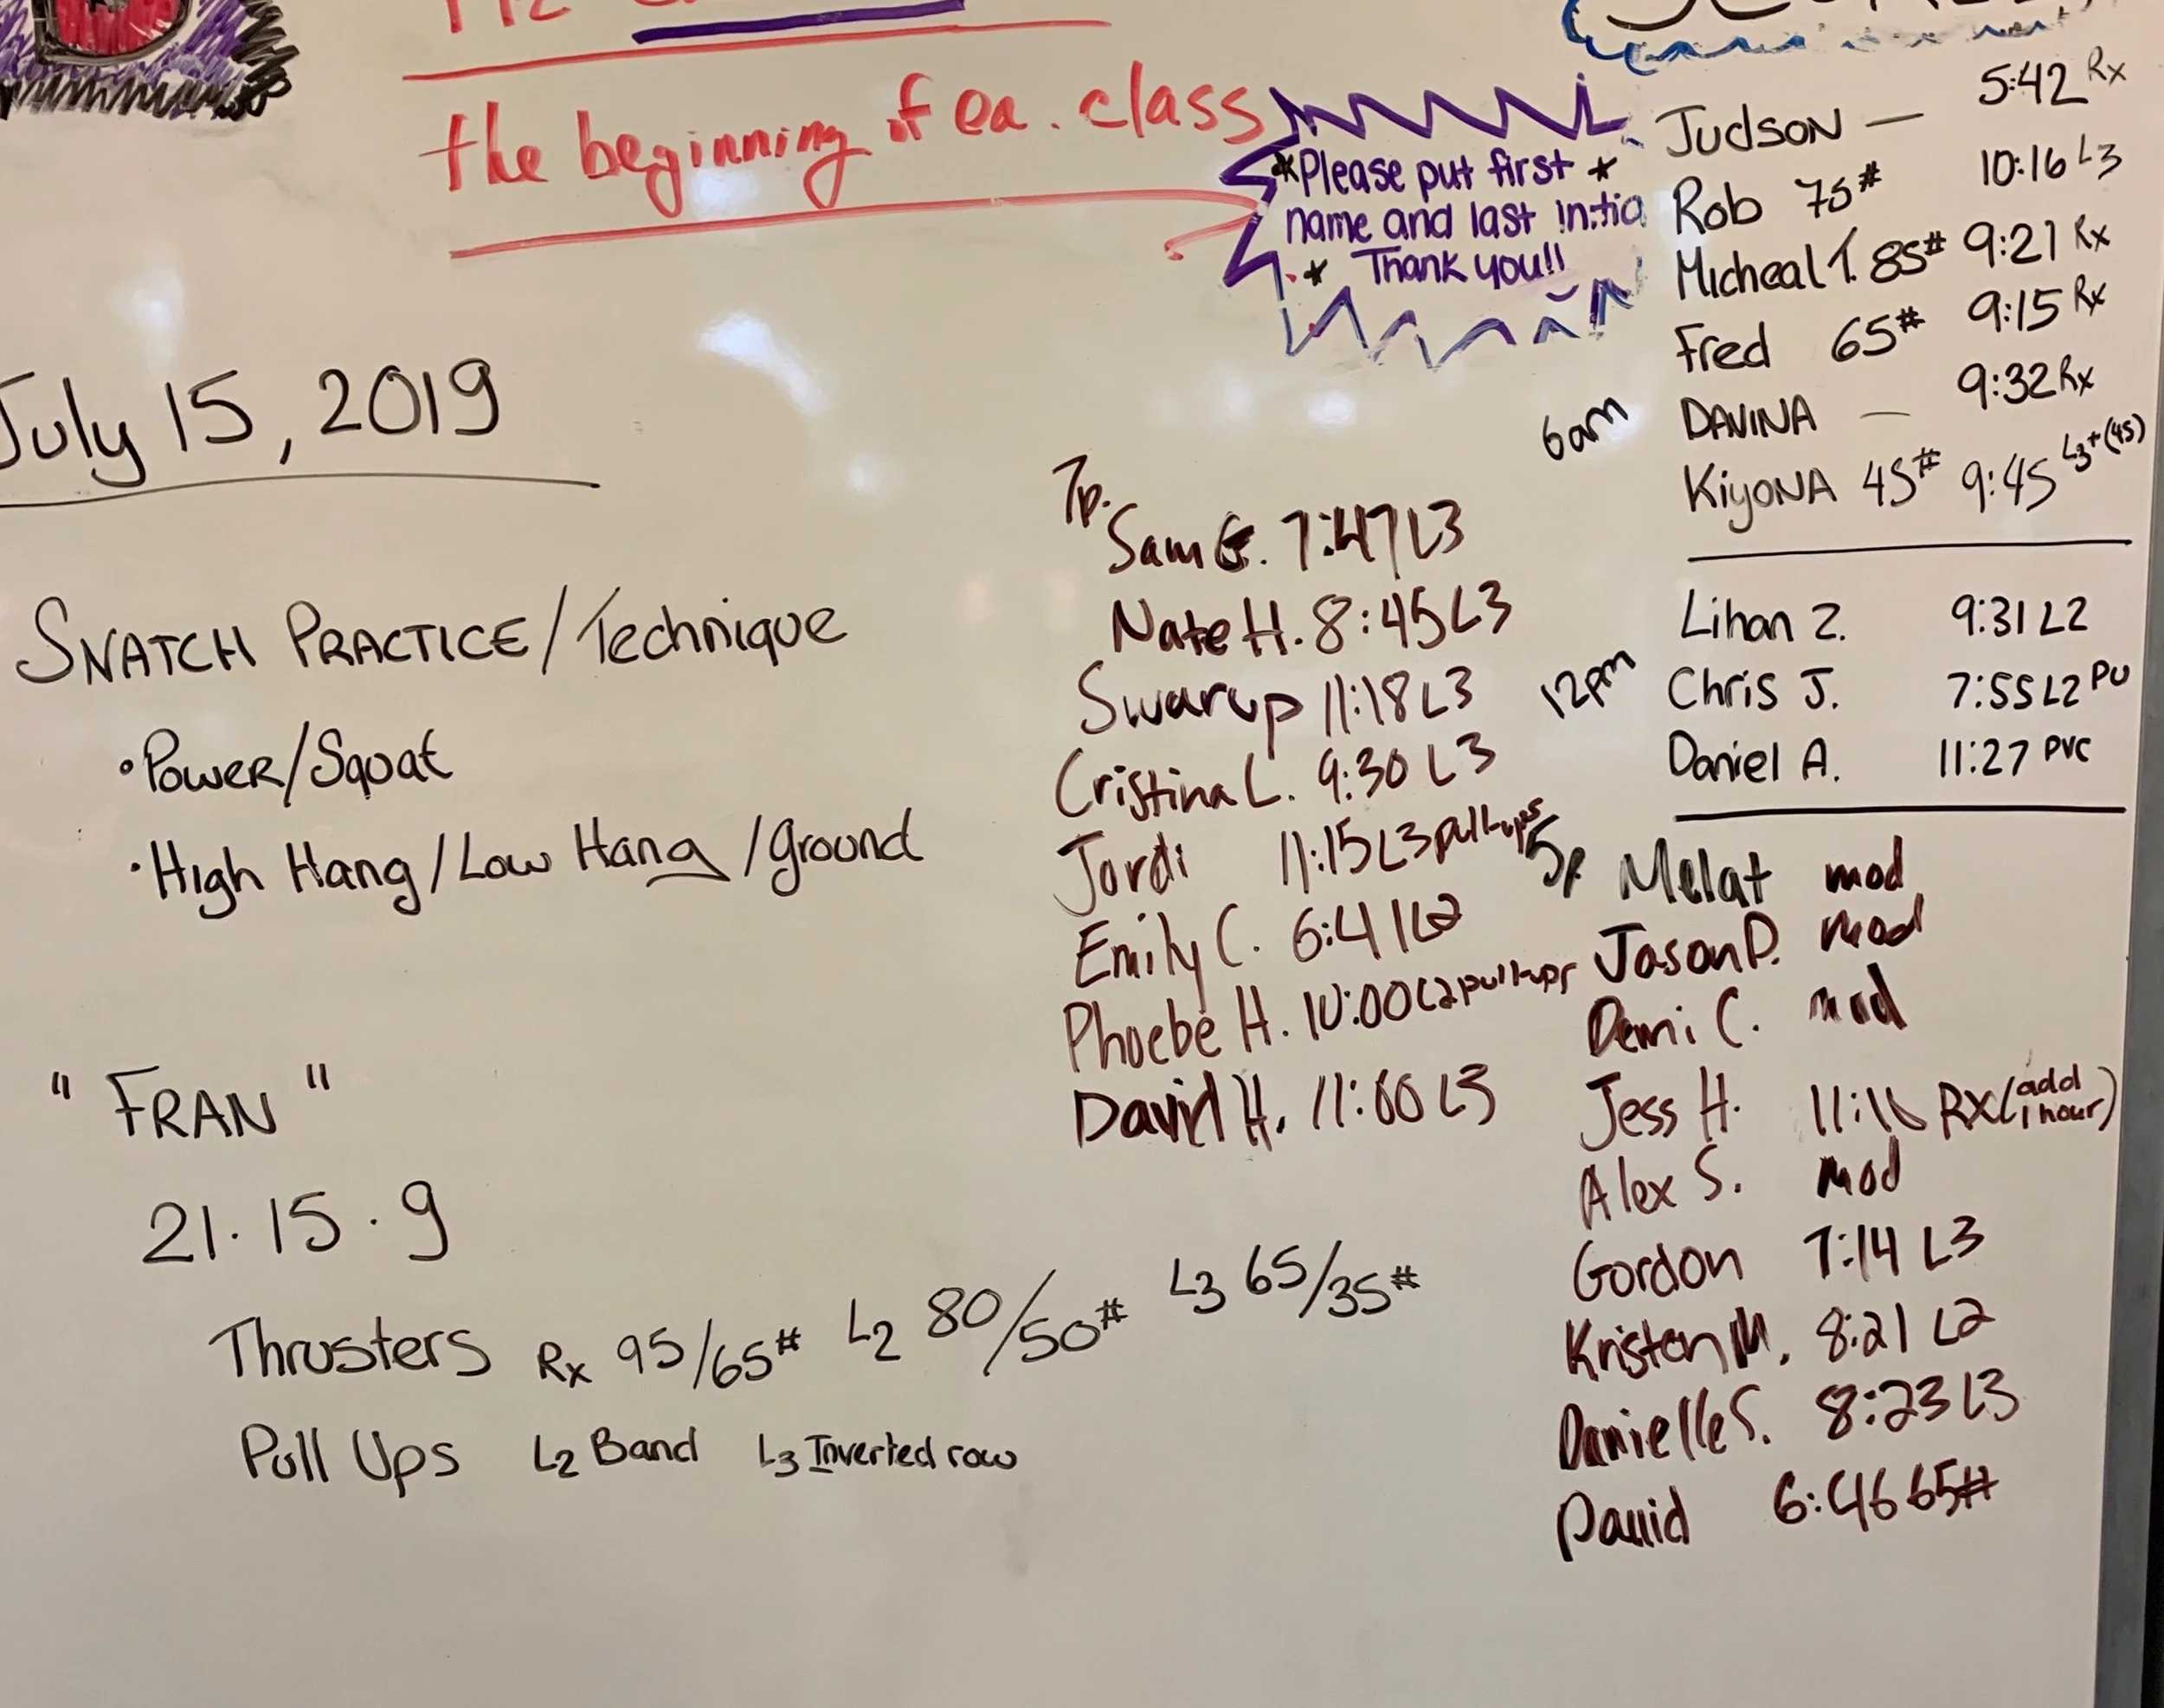 the beginning of ea. class
*Please put first *
name and last initia
* Thank you!!
July 15, 2019
SNATCH PRACTICE/Technique
•POWER/Squat
•High Hang/Low Hang/ground
"FRAN"
21·15·9
Thrusters Rx 95/65# L2 80/50# L3 65/35#
Pull Ups L2 Band L3 Inverted row
7p.
Sam G. 7:47 L3
Nate H. 8:45 L3
Swarup 11:18 L3
Cristina L. 9:30 L3
Jordi 11:15 L3 pull-ups
Emily C. 6:41 L2
Phoebe H. 10:00 L2 pull-ups
David H. 11:00 L3
6am
Judson — 5:42 Rx
Rob 75# 10:16 L3
Micheal T. 85# 9:21 Rx
Fred 65# 9:15 Rx
DAVINA — 9:32 Rx
KiyoNA 45# 9:45 L3+(45)
12pm
Lihan Z. 9:31 L2
Chris J. 7:55 L2 PU
Daniel A. 11:27 PVC
5p
Melat mod
Jason P. mod
Demi C. mod
Jess H. Rx (add 1 hour)
Alex S. mod
Gordon 7:14 L3
Kristen M. 8:21 L2
Danielle S. 8:23 L3
David 6:46 65#